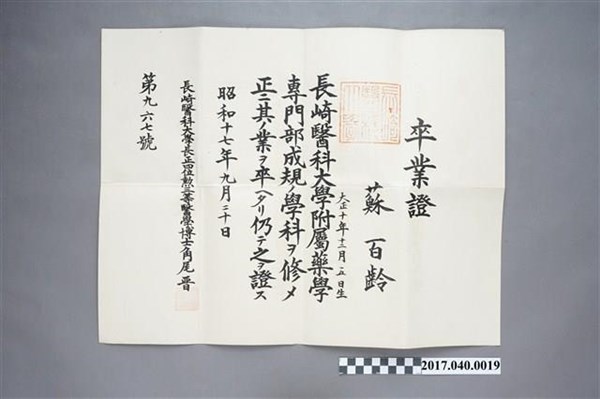 卒業證
蘇百齡
大正十年十二月二五日生
長崎醫科大學附屬藥學
専門部成規ノ學科ヲ修メ
正ニ其ノ業ヲ卒ヘタリ仍テ之ヲ證ス
昭和十七年九月二十日
長崎醫科大學長正四位勲三等醫學博士角尾晋
第九六七號
2017.040.0019